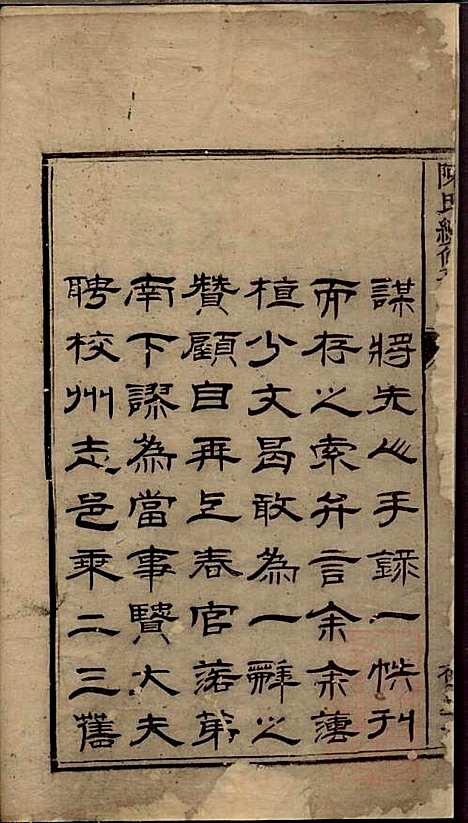 陳氏續修
謀將先人手錄一帙刊
而存之索弁言余余謭
植少文曷敢為一辭之
贊顧自再上春官落第
南下謬為當事賢大夫
聘校州志邑乘二三舊